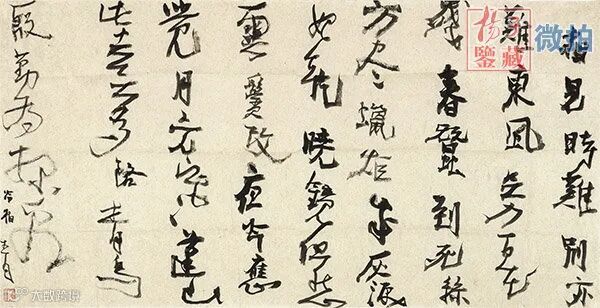 相見時難別亦
難東風无力百花
殘春蠶到死絲
方尽蠟炬成灰淚
始乾曉鏡但愁
雲鬢改夜吟應
覺月光寒蓬山
此去无多路青鳥
殷勤為探看
鑒藏
微拍
大欧跨境